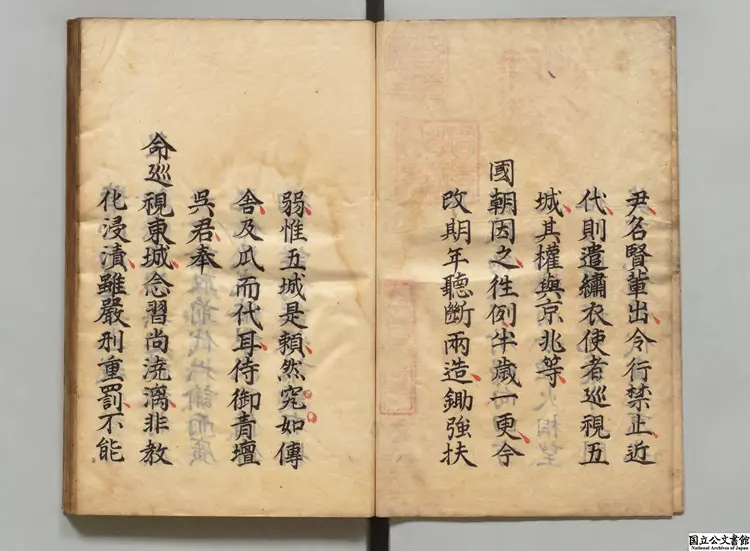 尹名賢輩出令行禁止近
代則遣繡衣使者巡視五
城其權與京兆等
國朝因之徃例半歲一更今
改期年聽斷兩造鋤強扶
弱惟五城是賴然究如傳
舍及瓜而代耳侍御青壇
吳君奉
命巡視東城念習尚澆漓非教
化浸漬雖嚴刑重罰不能
国立公文書館
National Archives of Japan